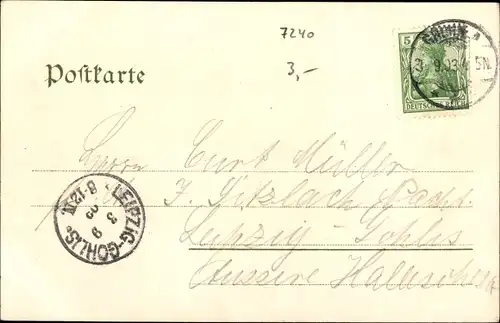 7240
3,-
Postkarte
5
DEUTSCHES REICH
3. 9.03. 5N.
Herrn Curt Müller
Leipzig-Gohlis
Äussere Hallische
LEIPZIG-GOHLIS
3 9 03
8-12N.